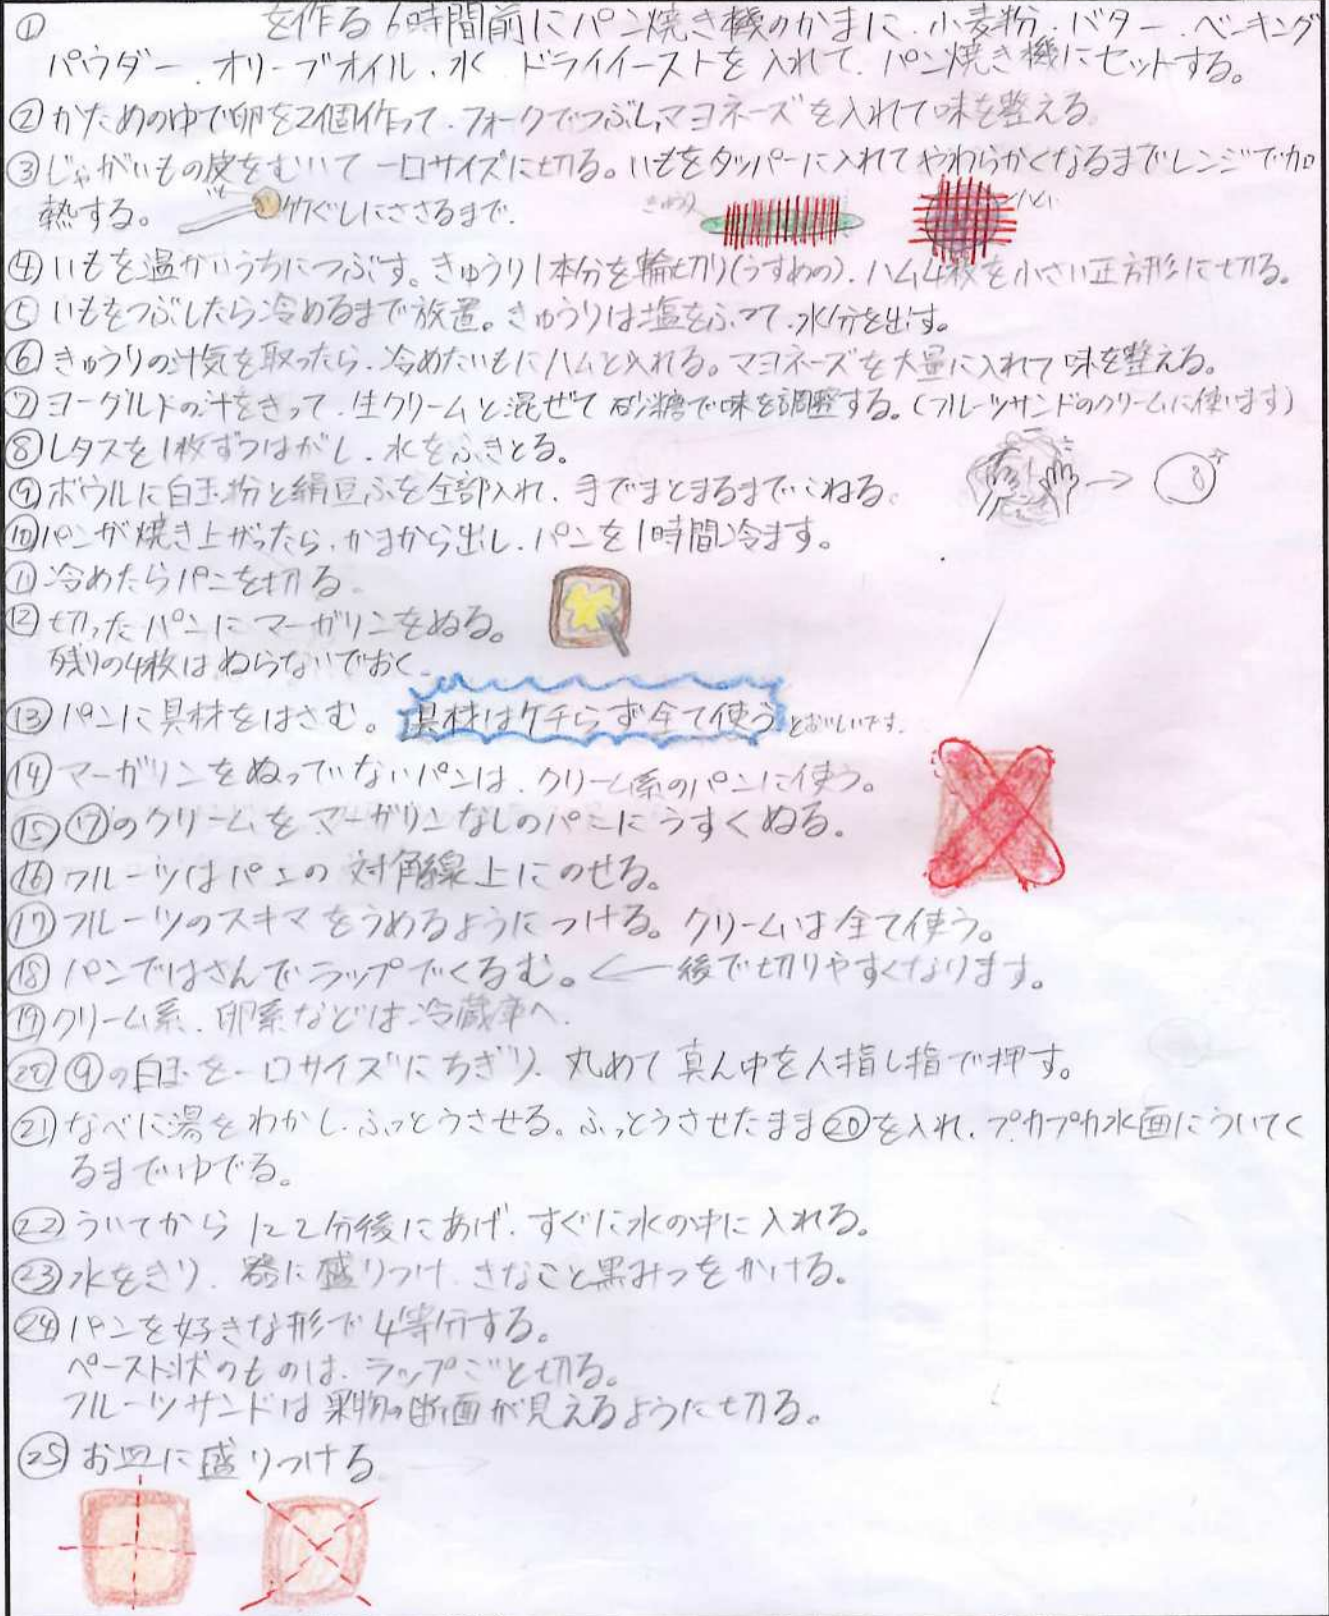 ① を作る6時間前にパン焼き機のかまに、小麦粉、バター、ベーキング
パウダー、オリーブオイル、水、ドライイーストを入れて、パン焼き機にセットする。
②かためのゆで卵を2個作って、フォークでつぶし、マヨネーズを入れて味を整える。
③じゃがいもの皮をむいて一口サイズに切る。いもをタッパーに入れてやわらかくなるまでレンジで加
熱する。 竹ぐしにささるまで。 きゅうり ハム
④いもを温かいうちにつぶす。きゅうり1本分を輪切り(うすめの)、ハム4枚を小さい正方形に切る。
⑤いもをつぶしたら冷めるまで放置。きゅうりは塩をふって、水分を出す。
⑥きゅうりの汁気を取ったら、冷めたいもにハムと入れる。マヨネーズを大量に入れて味を整える。
⑦ヨーグルトの汁をきって、生クリームと混ぜて砂糖で味を調整する。(フルーツサンドのクリームに使います)
⑧レタスを1枚ずつはがし、水をふきとる。
⑨ボウルに白玉粉と絹豆ふを全部入れ、手でまとまるまでこねる。
⑩パンが焼き上がったら、かまから出し、パンを1時間冷ます。
⑪冷めたらパンを切る。
⑫切ったパンにマーガリンをぬる。
残りの4枚はぬらないでおく。
⑬パンに具材をはさむ。 具材はケチらず全て使う とおいしいです。
⑭マーガリンをぬっていないパンは、クリーム系のパンに使う。
⑮⑦のクリームをマーガリンなしのパンにうすくぬる。
⑯フルーツはパンの対角線上にのせる。
⑰フルーツのスキマをうめるようにつける。クリームは全て使う。
⑱パンではさんでラップでくるむ。←後で切りやすくなります。
⑲クリーム系、卵系などは冷蔵庫へ。
⑳⑨の白玉を一口サイズにちぎり、丸めて真ん中を人指し指で押す。
㉑なべに湯をわかし、ふっとうさせる。ふっとうさせたまま⑳を入れ、プカプカ水面にういてく
るまでゆでる。
㉒ういてから1~2分後にあげ、すぐに水の中に入れる。
㉓水をきり、器に盛りつけ、きなこと黒みつをかける。
㉔パンを好きな形で4等分する。
ペースト状のものは、ラップごと切る。
フルーツサンドは果物の断面が見えるように切る。
㉕お皿に盛りつける